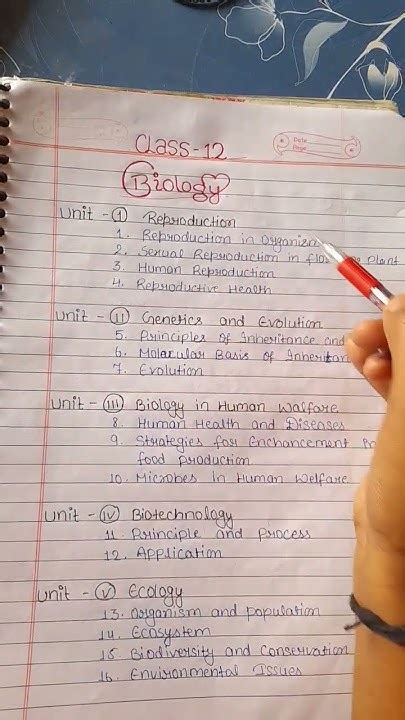 Date
Page
Class-12
Biology
Unit - (I) Reproduction
1. Reproduction in Organizm
2. Sexual Reproduction in Plant
3. Human Reproduction
4. Reproductive Health
Unit - (II) Genetics and Evolution
5. Principles of Inheritance and
6. Molacular Basis of Inheritan
7. Evolution
Unit - (III) Biology in Human Walfare
8. Human Health and Diseases
9. Strategies for Enchancement
food production
10. Microbes In Human Welfare
Unit - (IV) Biotechnology
11. Principle and Process
12. Application
Unit - (V) Ecology
13. Organism and population
14. Ecosystem
15. Biodiversity and Conservation
16. Environmental Issues